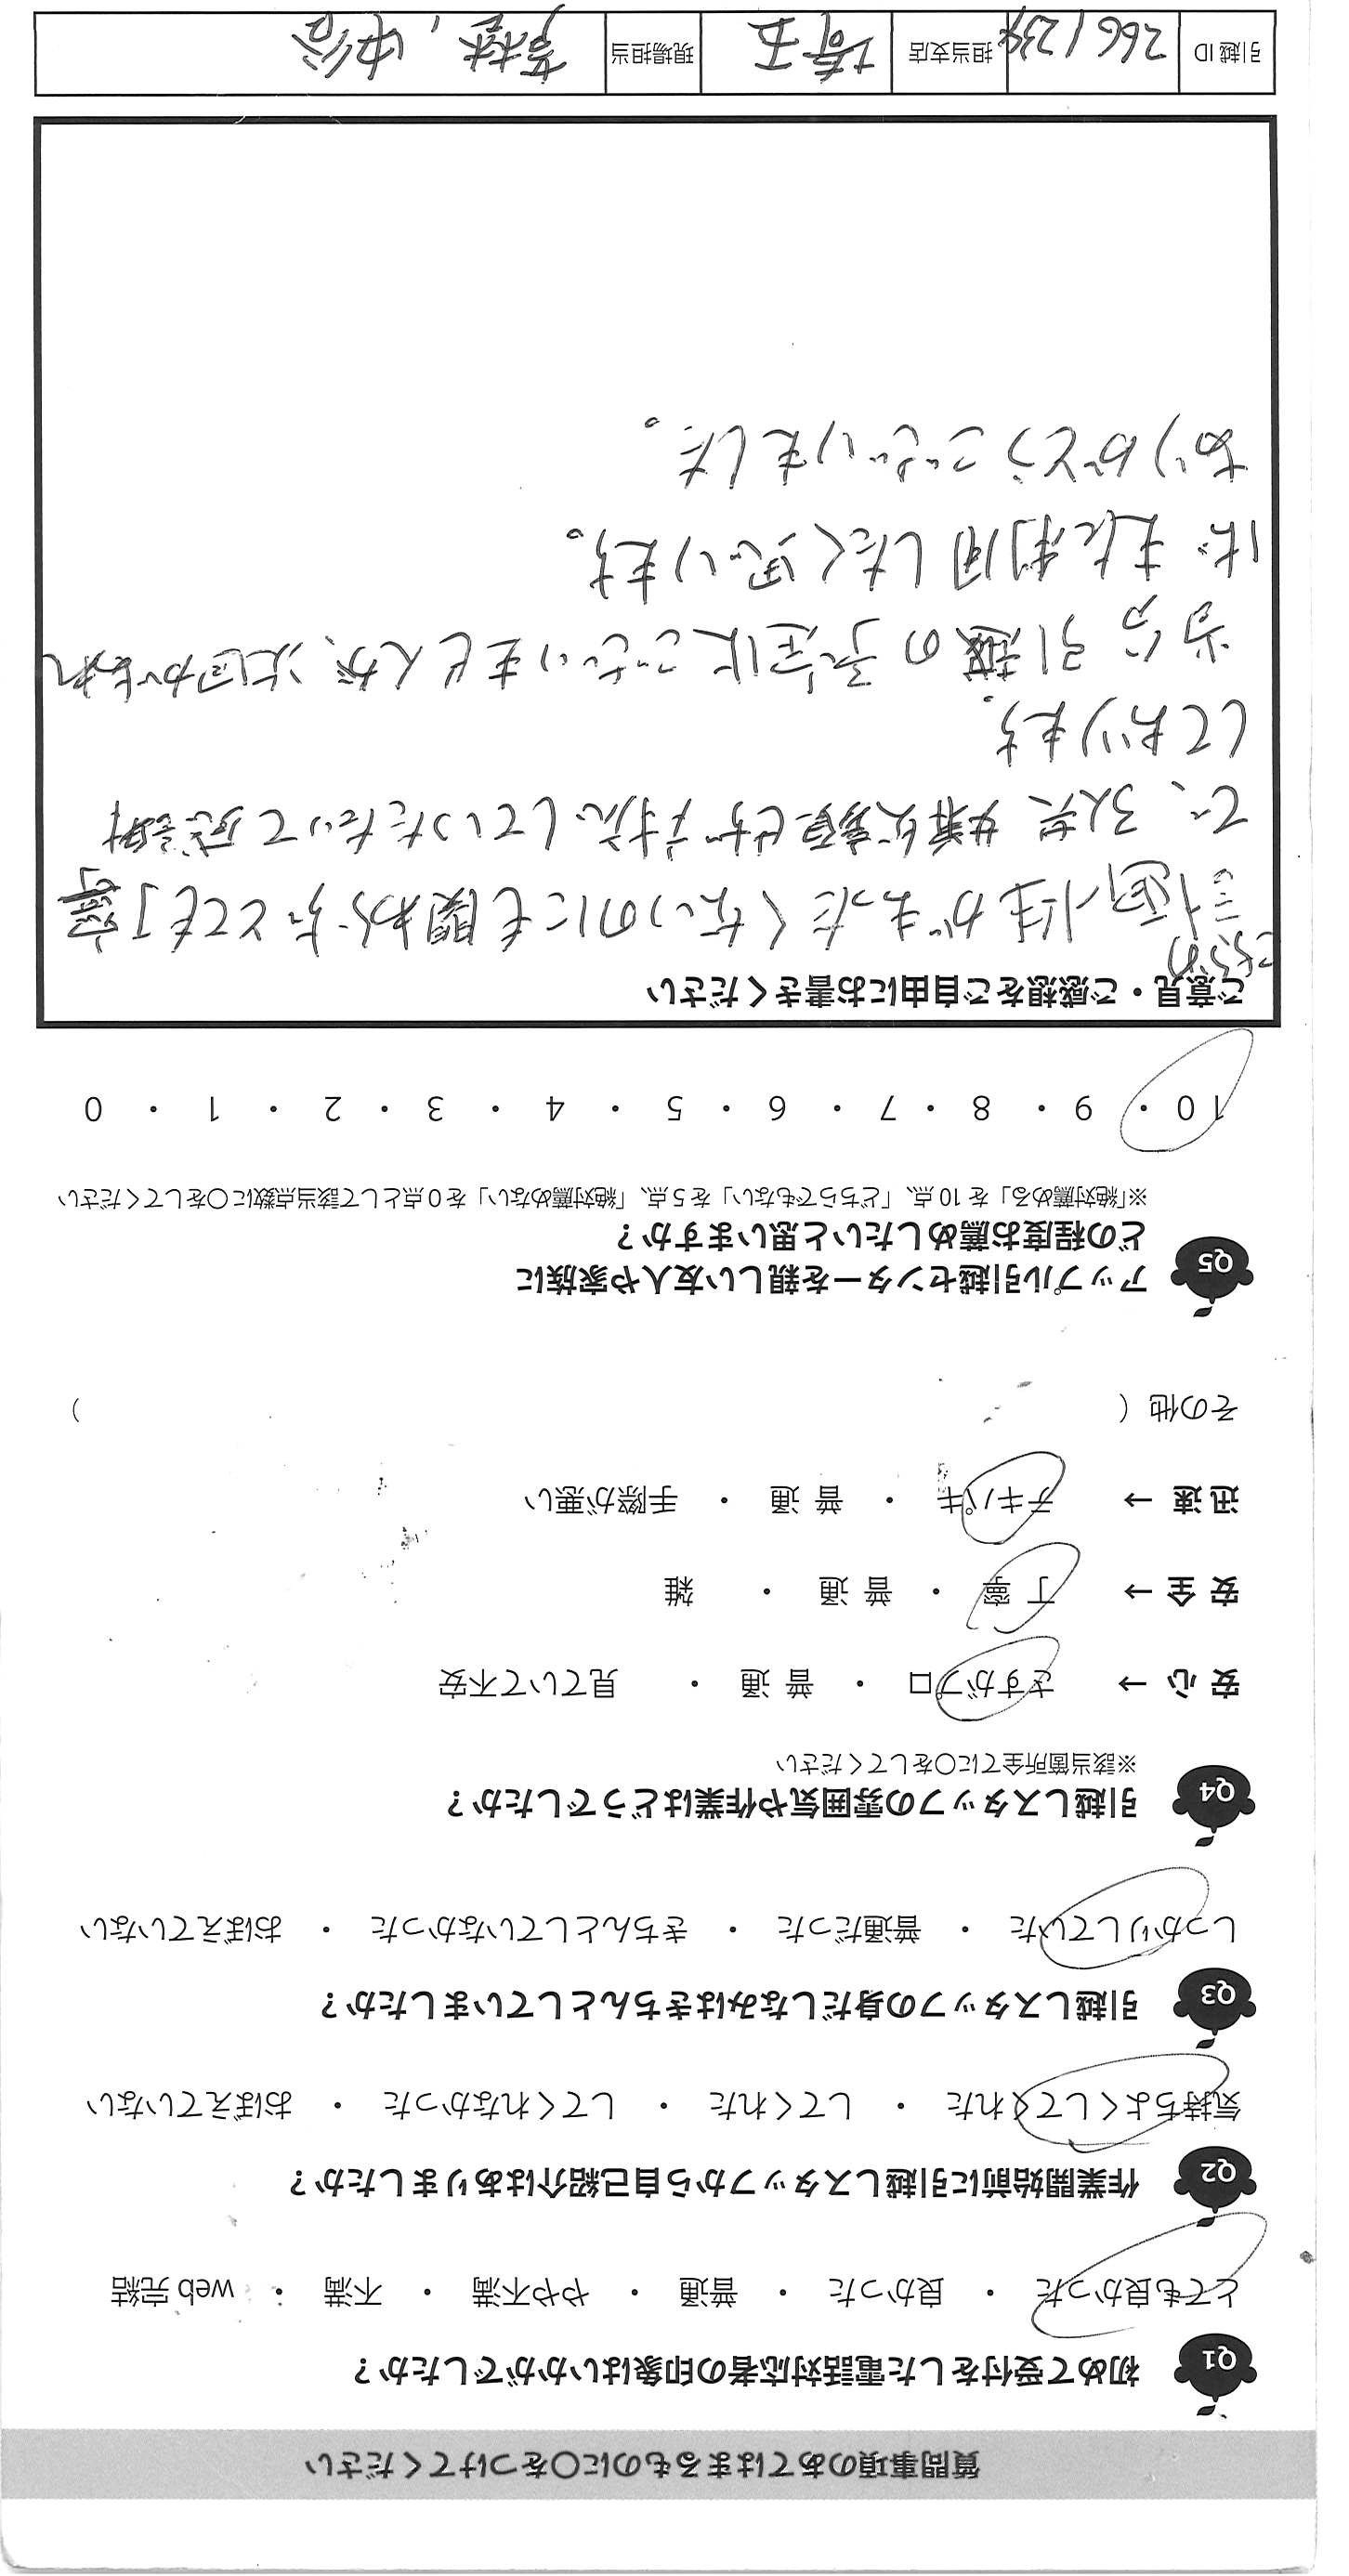 質問事項のあてはまるものに○をつけてください
Q1 初めて受付をした電話対応者の印象はいかがでしたか？
とても良かった ・ 良かった ・ 普通 ・ やや不満 ・ 不満 ・ web 完結
Q2 作業開始前に引越しスタッフから自己紹介はありましたか？
気持ちよくしてくれた ・ してくれた ・ してくれなかった ・ おぼえていない
Q3 引越しスタッフの身だしなみはきちんとしていましたか？
しっかりしていた ・ 普通だった ・ きちんとしていなかった ・ おぼえていない
Q4 引越しスタッフの雰囲気や作業はどうでしたか？
※該当箇所全てに○をしてください
安 心 → さすがプロ ・ 普 通 ・ 見ていて不安
安 全 → 丁 寧 ・ 普 通 ・ 雑
迅 速 → テキパキ ・ 普 通 ・ 手際が悪い
その他 （ ）
Q5 アップル引越センターを親しい友人や家族に
どの程度お薦めしたいと思いますか？
※「絶対薦める」を 10 点、「どちらでもない」を 5 点、「絶対薦めない」を 0 点として該当点数に○をしてください
10 ・ 9 ・ 8 ・ 7 ・ 6 ・ 5 ・ 4 ・ 3 ・ 2 ・ 1 ・ 0
ご意見・ご感想をご自由にお書きください
こちらの
計画性がまったくないのにも関わらずとても丁寧
で、3人共 嫌な顔せず対応していただいて感謝
しております。
当分 引越の予定はございませんが、次回があれ
ば また利用したく思います。
ありがとうございました。
引越 ID 2661234 担当支店 埼玉 現場担当 高林, 中谷